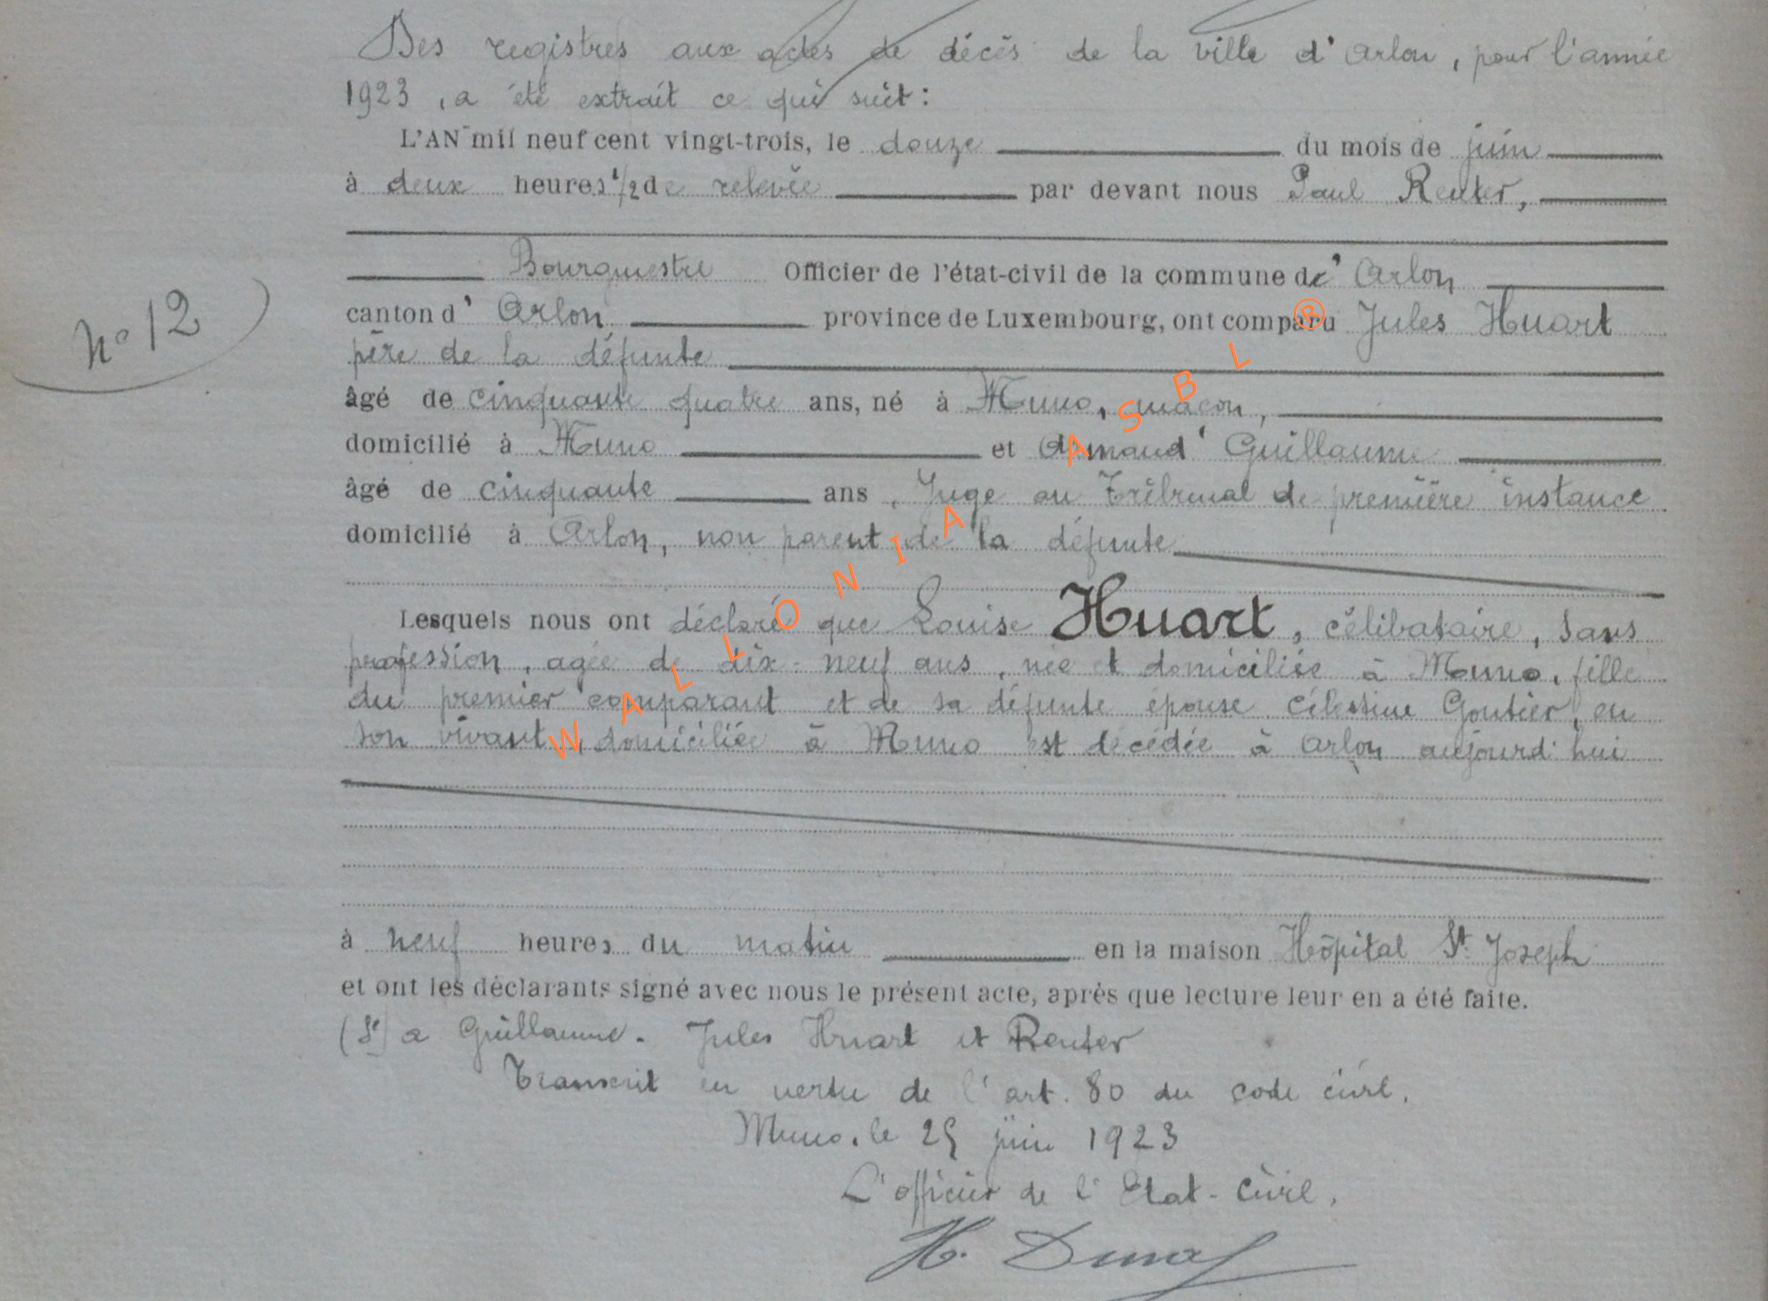 Des registres aux actes de décès de la ville d'Arlon, pour l'année
1923, a été extrait ce qui suit :
L'AN mil neuf cent vingt-trois, le douze du mois de juin
à deux heures 1/2 de relevée par devant nous Paul Reuter,
Bourgmestre Officier de l'état-civil de la commune d' Arlon
canton d' Arlon province de Luxembourg, ont comparu Jules Huart
père de la défunte
âgé de cinquante quatre ans, né à Muno, maçon,
domicilié à Muno et Armand Guillaume
âgé de cinquante ans, Juge au Tribunal de première instance
domicilié à Arlon, non parent de la défunte
N° 12
Lesquels nous ont déclaré que Louise Huart, célibataire, sans
profession, agée de dix-neuf ans, née et domiciliée à Muno, fille
du premier comparant et de sa défunte épouse Célestine Goutier, en
son vivant, domiciliée à Muno est décédée à Arlon aujourd'hui
à neuf heures du matin en la maison Hôpital St Joseph
et ont les déclarants signé avec nous le présent acte, après que lecture leur en a été faite.
(Sé) a Guillaume. Jules Huart et Reuter
Transcrit en vertu de l'art. 80 du code civil.
Muno, le 25 juin 1923
L'officier de l'Etat-Civil.
H.
WALLONIA ASBL ®